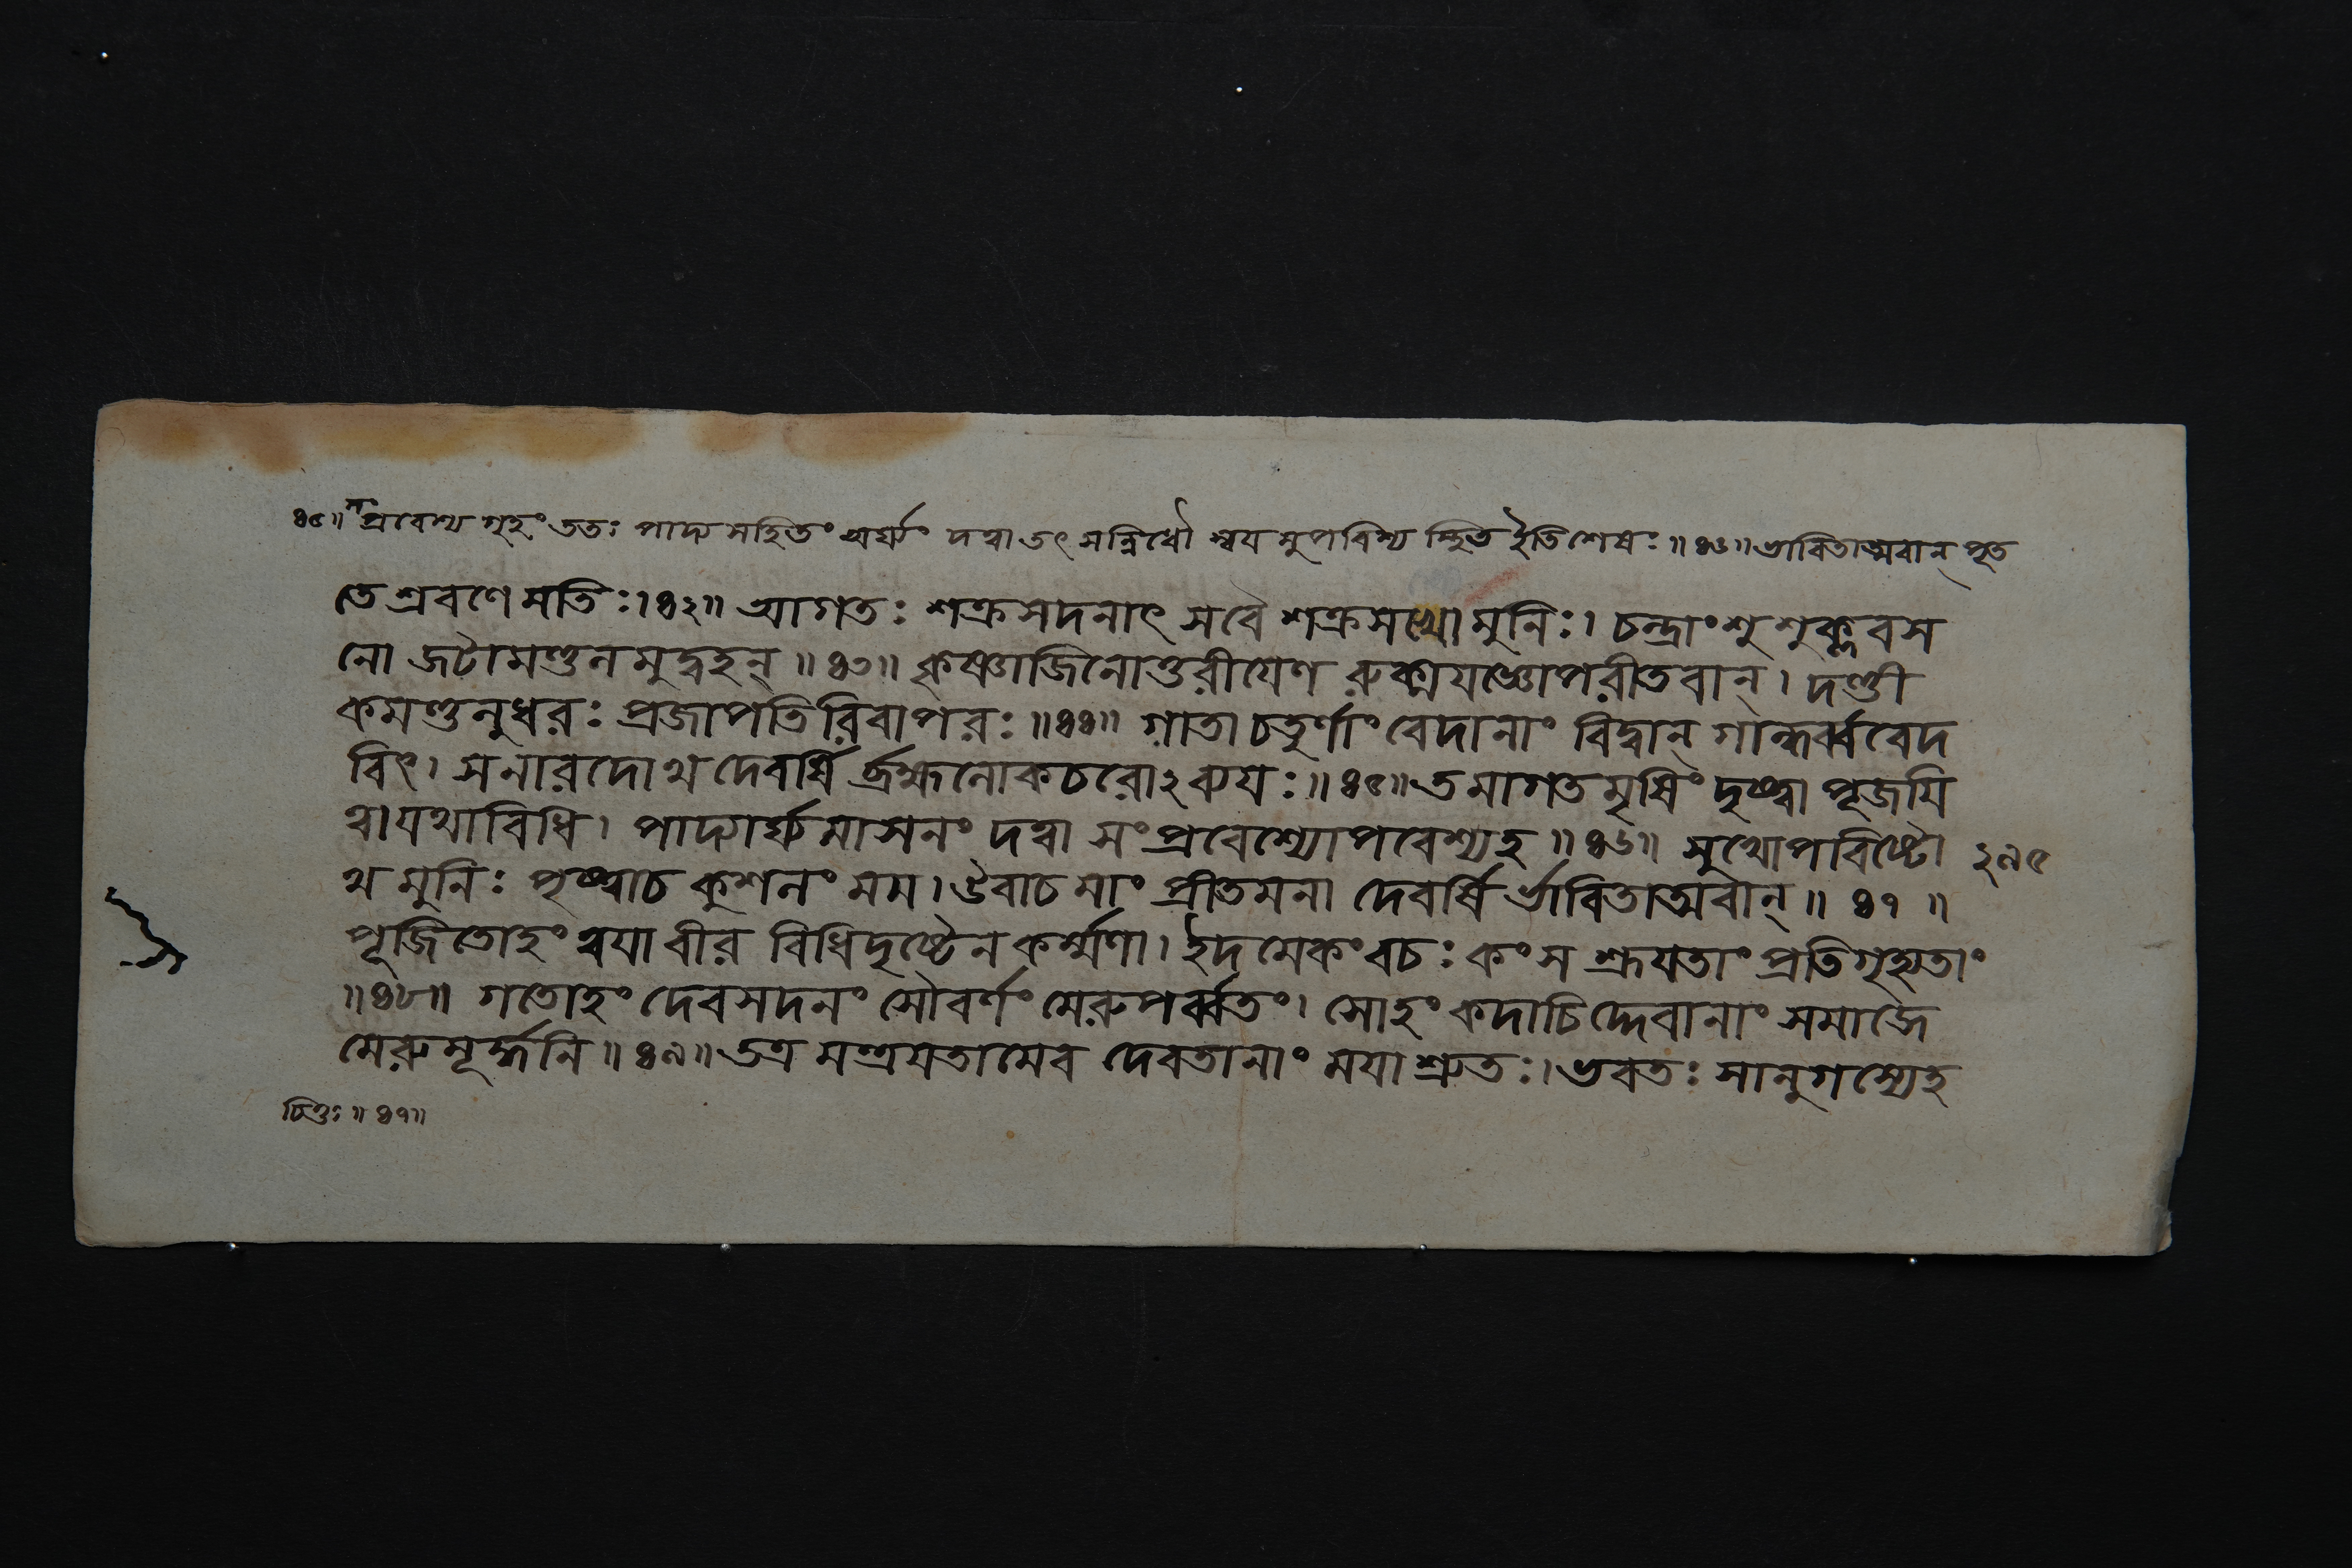 ৪৫॥ প্রবেশ্য গৃহং ততঃ পাদ্য সহিতং অর্ঘ্যং দত্ত্বা তৎ সন্নিধৌ স্বয়মুপবিশ্য স্থিত ইতিশেষঃ॥৪৬॥ভাবিতাত্মবান্ পূত
তে শ্রবণে মতিঃ।৪২॥ আগতঃ শক্রসদনাৎ সবৈ শক্রসখো মুনিঃ। চন্দ্রাংশু শুক্লবস
নো জটামণ্ডলমুদ্বহন্॥৪৩॥ কৃষ্ণাজিনোত্তরীযেণ রুক্মযজ্ঞোপবীতবান্। দণ্ডী
কমণ্ডলুধরঃ প্রজাপতিরিবাপরঃ॥৪৪॥ গাতা চতুর্ণাং বেদানাং বিদ্বান্ গান্ধর্ব্ববেদ
বিৎ। সনারদোথ দেবর্ষি র্ব্রহ্মলোকচরোঽব্যযঃ॥৪৫॥তমাগতমৃষিং দৃষ্ট্বা পূজযি
ত্বা যথাবিধি। পাদ্যার্ঘ্যমাসনং দত্ত্বা সংপ্রবেশ্যোপবেশ্যহ॥৪৬॥ সুখোপবিষ্টো ২৯৫
থ মুনিঃ পৃষ্ট্বাচ কুশলং মম। উবাচ মাং প্রীতমনা দেবর্ষি র্ভাবিতাত্মবান্॥ ৪৭ ॥
পূজিতোহং ত্বযা বীর বিধিদৃষ্টেন কর্ম্মণা। ইদমেকং বচঃ কংস শ্রূযতাং প্রতিগৃহ্যতাং
॥৪৮॥ গতোহং দেবসদনং সৌবর্ণং মেরুপর্ব্বতং। সোহং কদাচিদ্দেবানাং সমাজে
মেরুমূর্দ্ধনি॥৪৯॥তত্র মন্ত্রযতামেব দেবতানাং মযা শ্রুতঃ।ভবতঃ সানুগস্যেহ
চিত্তঃ॥৪৭॥